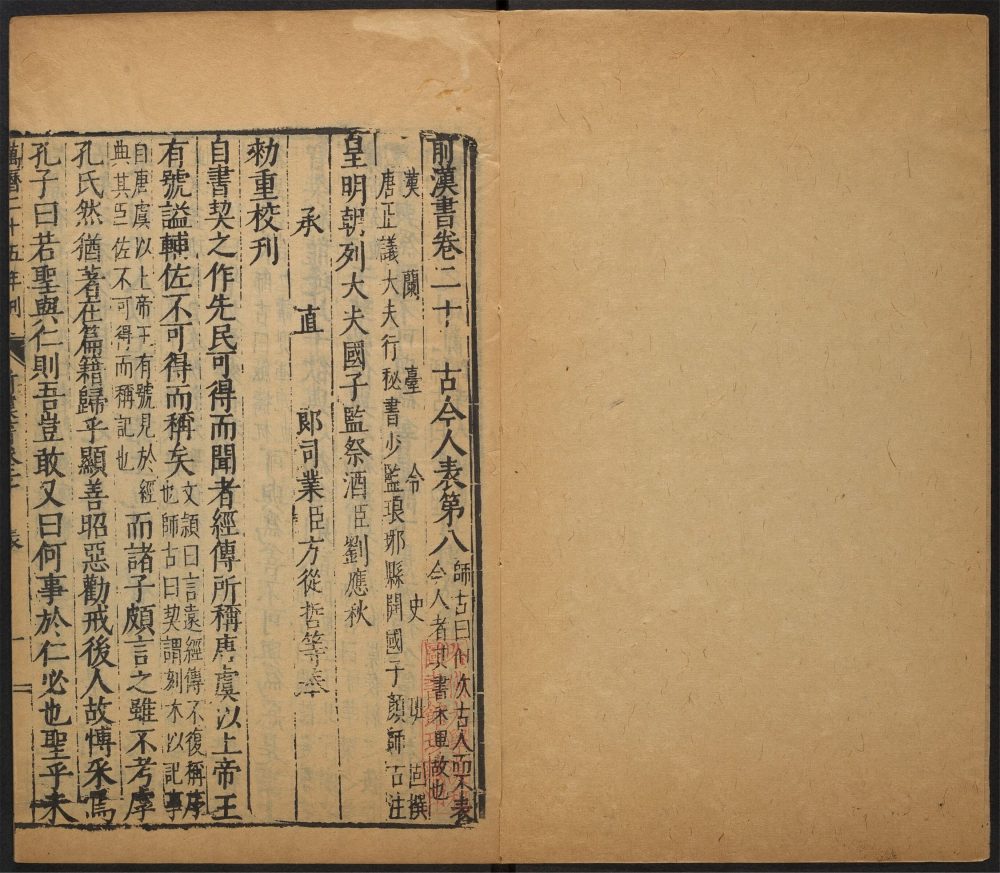 前漢書卷二十 古今人表第八 師古曰但次古人而不表今人者其書未畢故也
漢蘭臺令史班固撰
唐正議大夫行秘書少監琅邪縣開國子顏師古注
皇明朝列大夫國子監祭酒臣劉應秋
承直郎司業臣方從哲等奉
勑重校刊
自書契之作先民可得而聞者經傳所稱唐虞以上帝王
有號謚輔佐不可得而稱矣 文頴曰言遠經傳不復稱序也師古曰契謂刻木以記事
自唐虞以上帝王有號見於經典其臣佐不可得而稱記也 而諸子頗言之雖不考虖
孔氏然猶著在篇籍歸乎顯善昭惡勸戒後人故博采焉
孔子曰若聖與仁則吾豈敢又曰何事於仁必也聖乎未
萬曆二十五年刊 前漢書卷二十 表 一